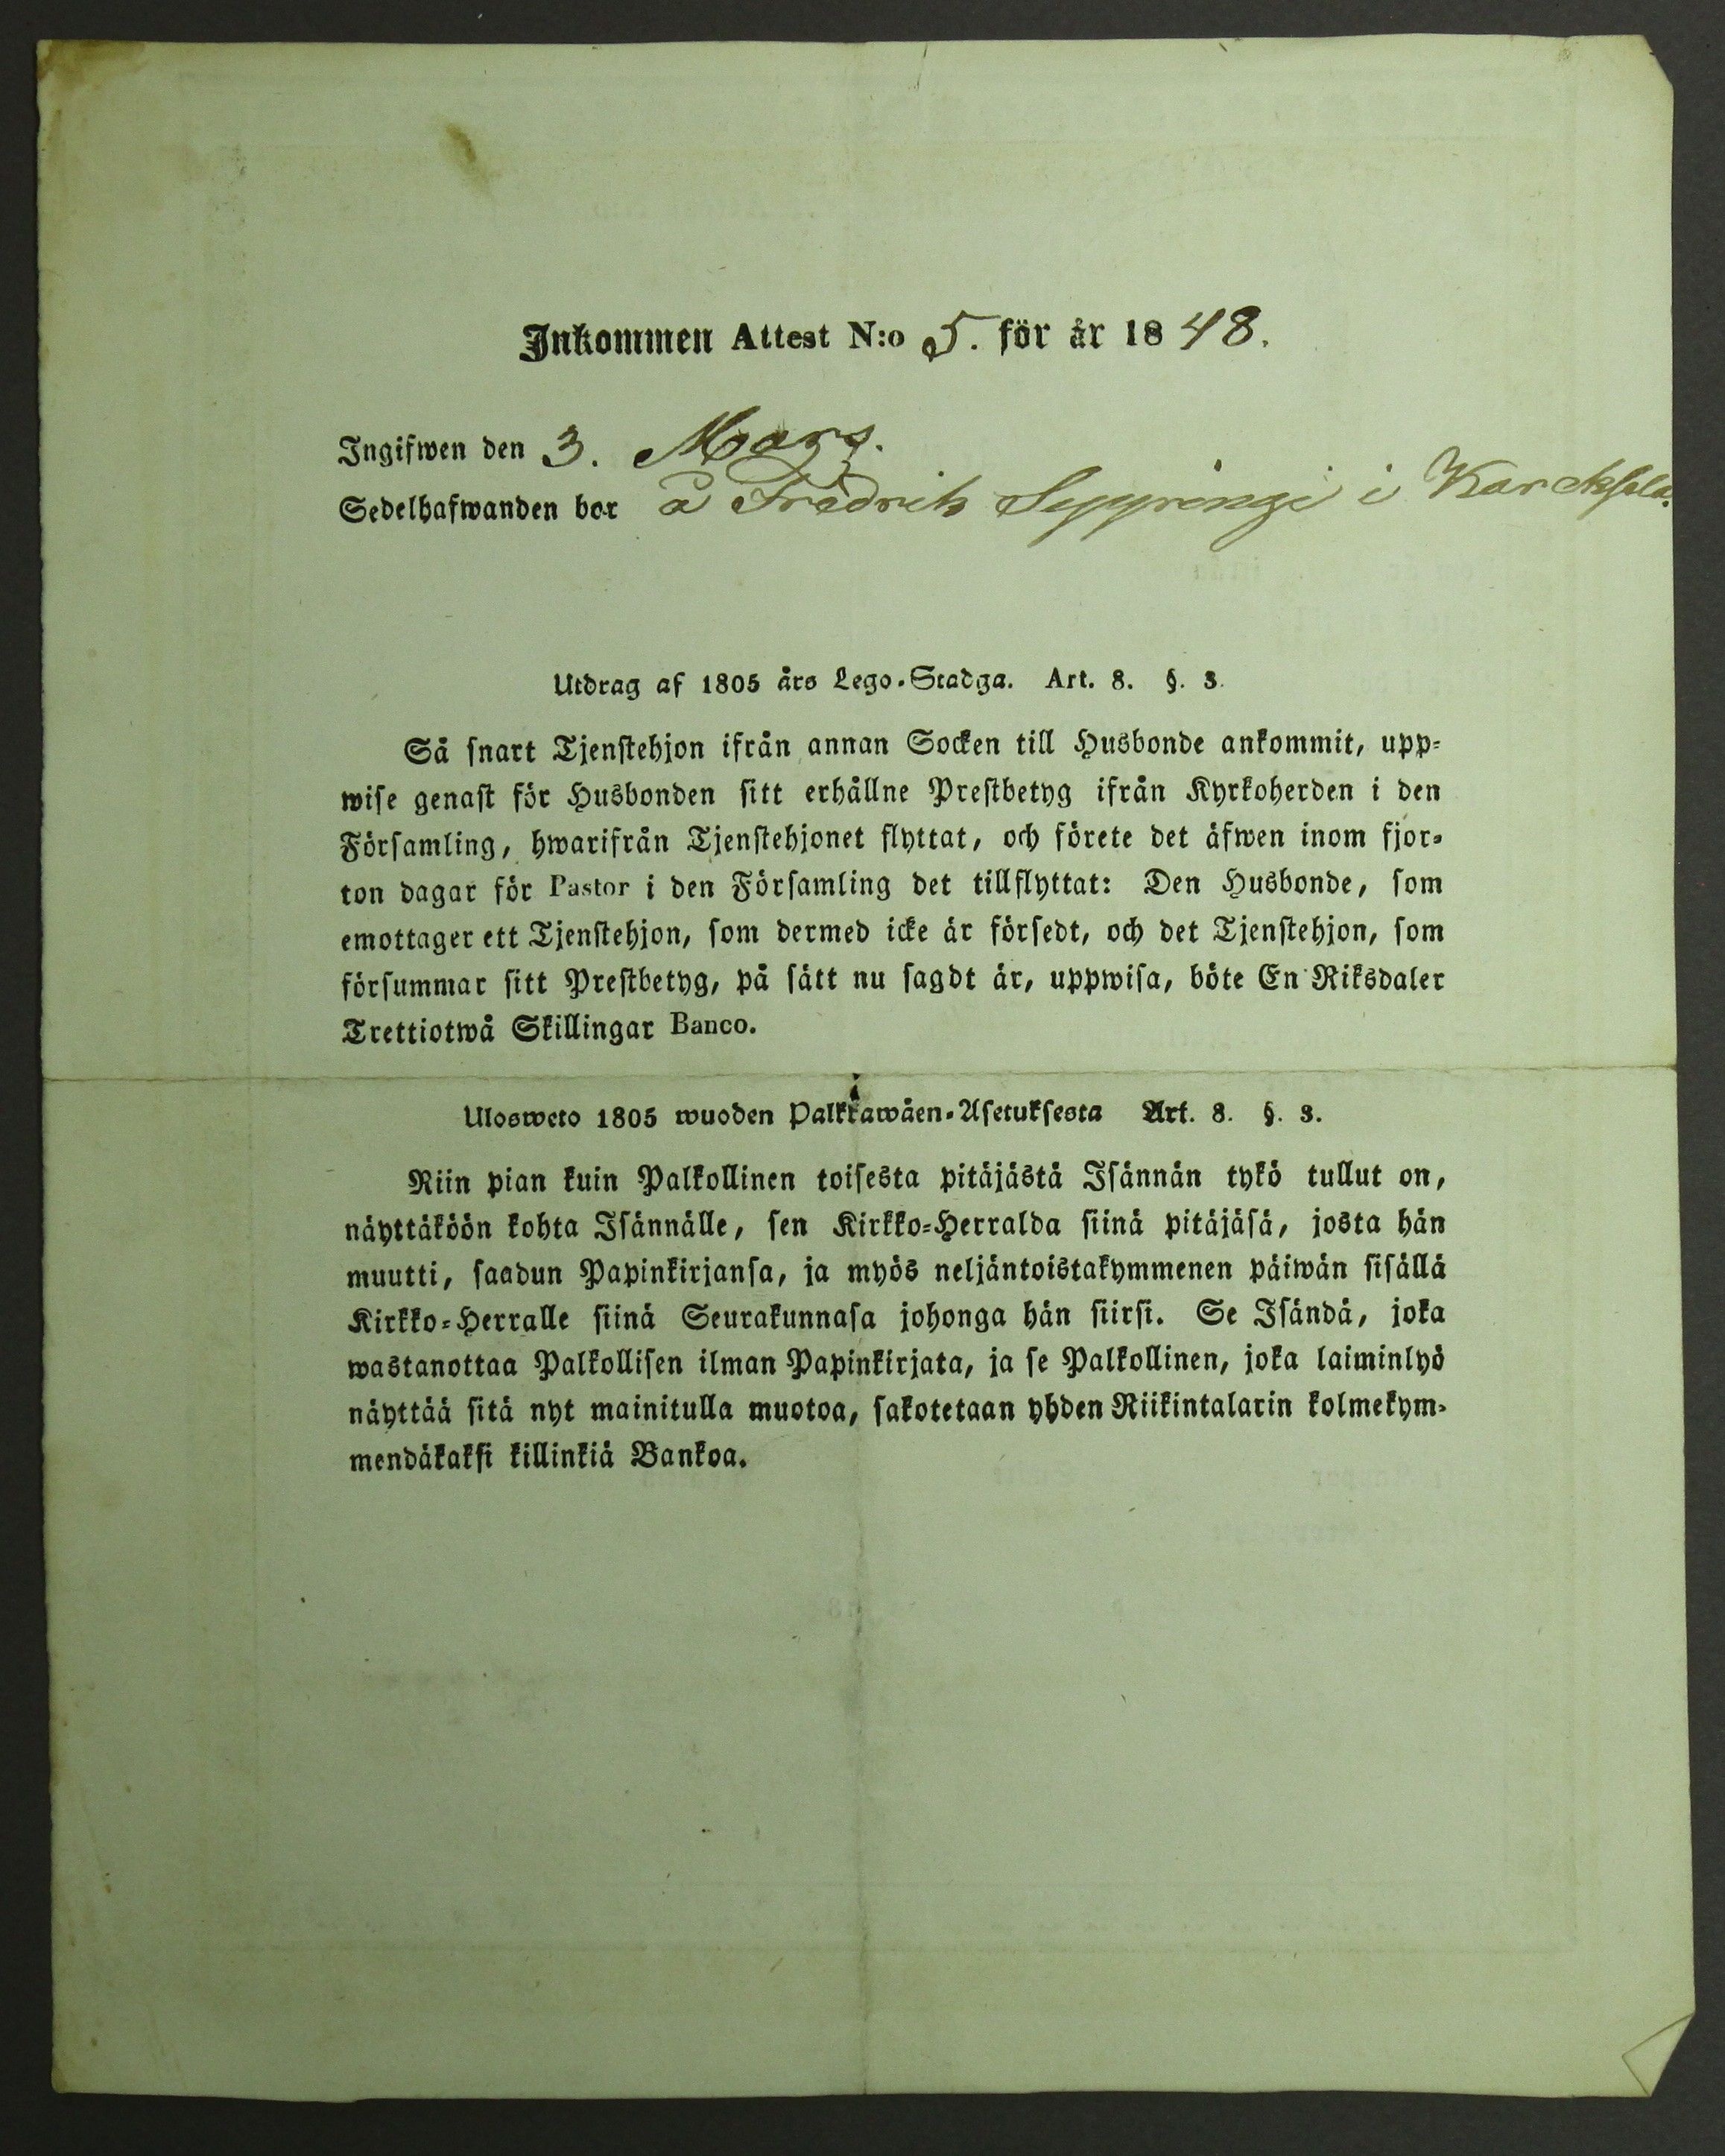 Inkommen Attest N:o 5. för år 1848.
Ingifwen den 3. Mars.
Sedelhafwanden bor å Fredrik Seppringi i
Utdrag af 1805 års Lego-Stadga. Art. 8. §. 3.
Så snart Tjenstehjon ifrån annan Socken till Husbonde ankommit, upp-
wise genast för Husbonden sitt erhållne Prestbetyg ifrån Kyrkoherden i den
Församling, hwarifrån Tjenstehjonet flyttat, och förete det äfwen inom fjor-
ton dagar för Pastor i den Församling det tillflyttat: Den Husbonde, som
emottager ett Tjenstehjon, som dermed icke är försedt, och det Tjenstehjon, som
försummar sitt Prestbetyg, på sätt nu sagdt är, uppwisa, böte En Riksdaler
Trettiotwå Skillingar Banco.
Ulosweto 1805 wuoden Palkkawäen-Asetuksesta Art. 8. §. 3.
Niin pian kuin Palkollinen toisesta pitäjästä Isännän tykö tullut on,
näyttäköön kohta Isännälle, sen Kirkko-Herralda siinä pitäjäsä, josta hän
muutti, saadun Papinkirjansa, ja myös neljäntoistakymmenen päiwän sisällä
Kirkko-Herralle siinä Seurakunnasa johonga hän siirsi. Se Isändä, joka
wastanottaa Palkollisen ilman Papinkirjata, ja se Palkollinen, joka laiminlyö
näyttää sitä nyt mainitulla muotoa, sakotetaan yhden Riikintalarin kolmekym-
mendäkaksi killinkiä Bankoa.